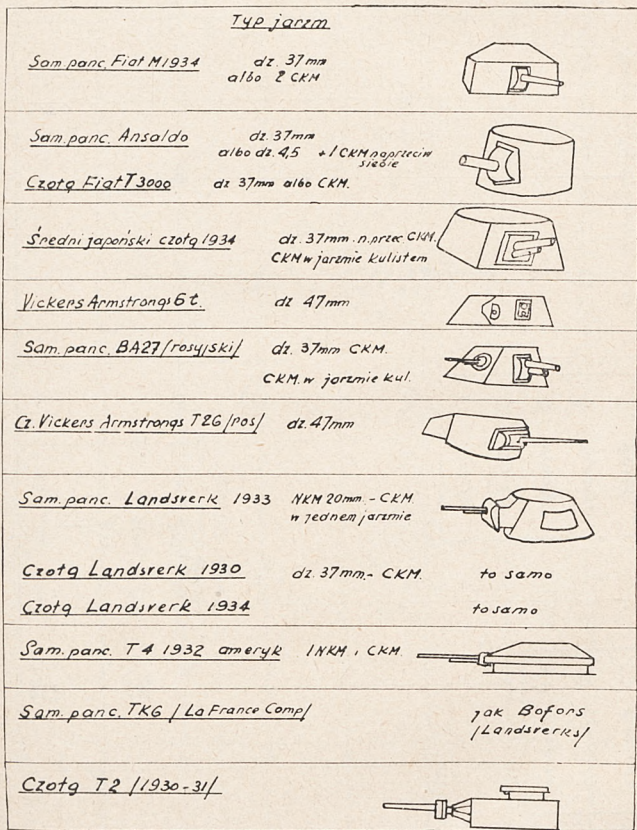 Typ jarzm
Sam. panc. Fiat M1934 dz. 37mm
albo 2 CKM
Sam. panc. Ansaldo dz. 37mm
albo dz. 4,5 + 1 CKM naprzeciw
siebie
Czołg Fiat T3000 dz 37mm albo CKM.
Średni japoński czołg 1934 dz. 37mm. n.przec CKM.
CKM w jarzmie kulistem
Vickers Armstrongs 6t. dz 47mm
Sam. panc. BA27 /rosyjski/ dz. 37mm CKM.
CKM. w jarzmie kul.
Cz. Vickers Armstrongs T26 /ros/ dz. 47mm
Sam. panc. Landsverk 1933 NKM 20mm. - CKM.
w jednem jarzmie
Czołg Landsverk 1930 dz. 37mm.- CKM. to samo
Czołg Landsverk 1934 to samo
Sam. panc. T4 1932 ameryk 1NKM i CKM.
Sam. panc. TK6 / La France Comp/ jak Bofors
/Landsverks/
Czołg T2 /1930-31/